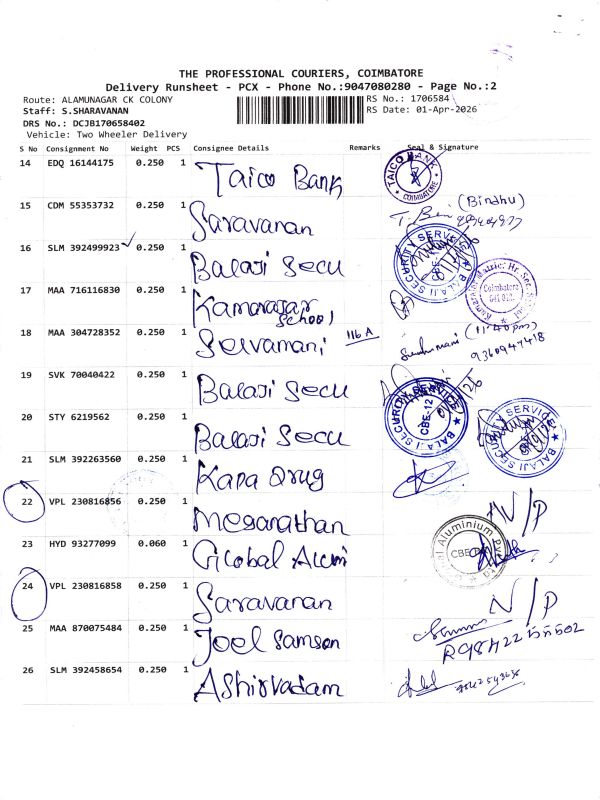 THE PROFESSIONAL COURIERS, COIMBATORE
Delivery Runsheet - PCX - Phone No.:9047080280 - Page No.:2
Route: ALAMUNAGAR CK COLONY
RS No.: 1706584
Staff: S.SHARAVANAN
RS Date: 01-Apr-2026
DRS No.: DCJB170658402
Vehicle: Two Wheeler Delivery
S No Consignment No Weight PCS Consignee Details Remarks Seal & Signature
14 EDQ 16144175 0.250 1 Taico Bank
TAICO BANK
COIMBATORE
15 CDM 55353732 0.250 1 Saravanan
(Bindhu)
16 SLM 392499923 0.250 1 Balaji Secu
BALAJI SECURITY SERVICE
17 MAA 716116830 0.250 1 Kamarajar School
Coimbatore
18 MAA 304728352 1 Selvamani 116 A
(11:40 pm)
9360947418
19 SVK 70040422 0.250 1 Balaji Secu
BALAJI SECURITY SERVICE
CBE-12
20 STY 6219562 0.250 1 Balaji Secu
BALAJI SECURITY SERVICE
21 SLM 392263560 0.250 1 Kapa Drug
22 VPL 230816856 0.250 1 Meganathan
N/P
23 HYD 93277099 0.060 1 Global Alumi
Aluminium
24 VPL 230816858 0.250 1 Saravanan
N/P
25 MAA 870075484 0.250 1 Joel Samson
26 SLM 392458654 0.250 1 Ashirvadam